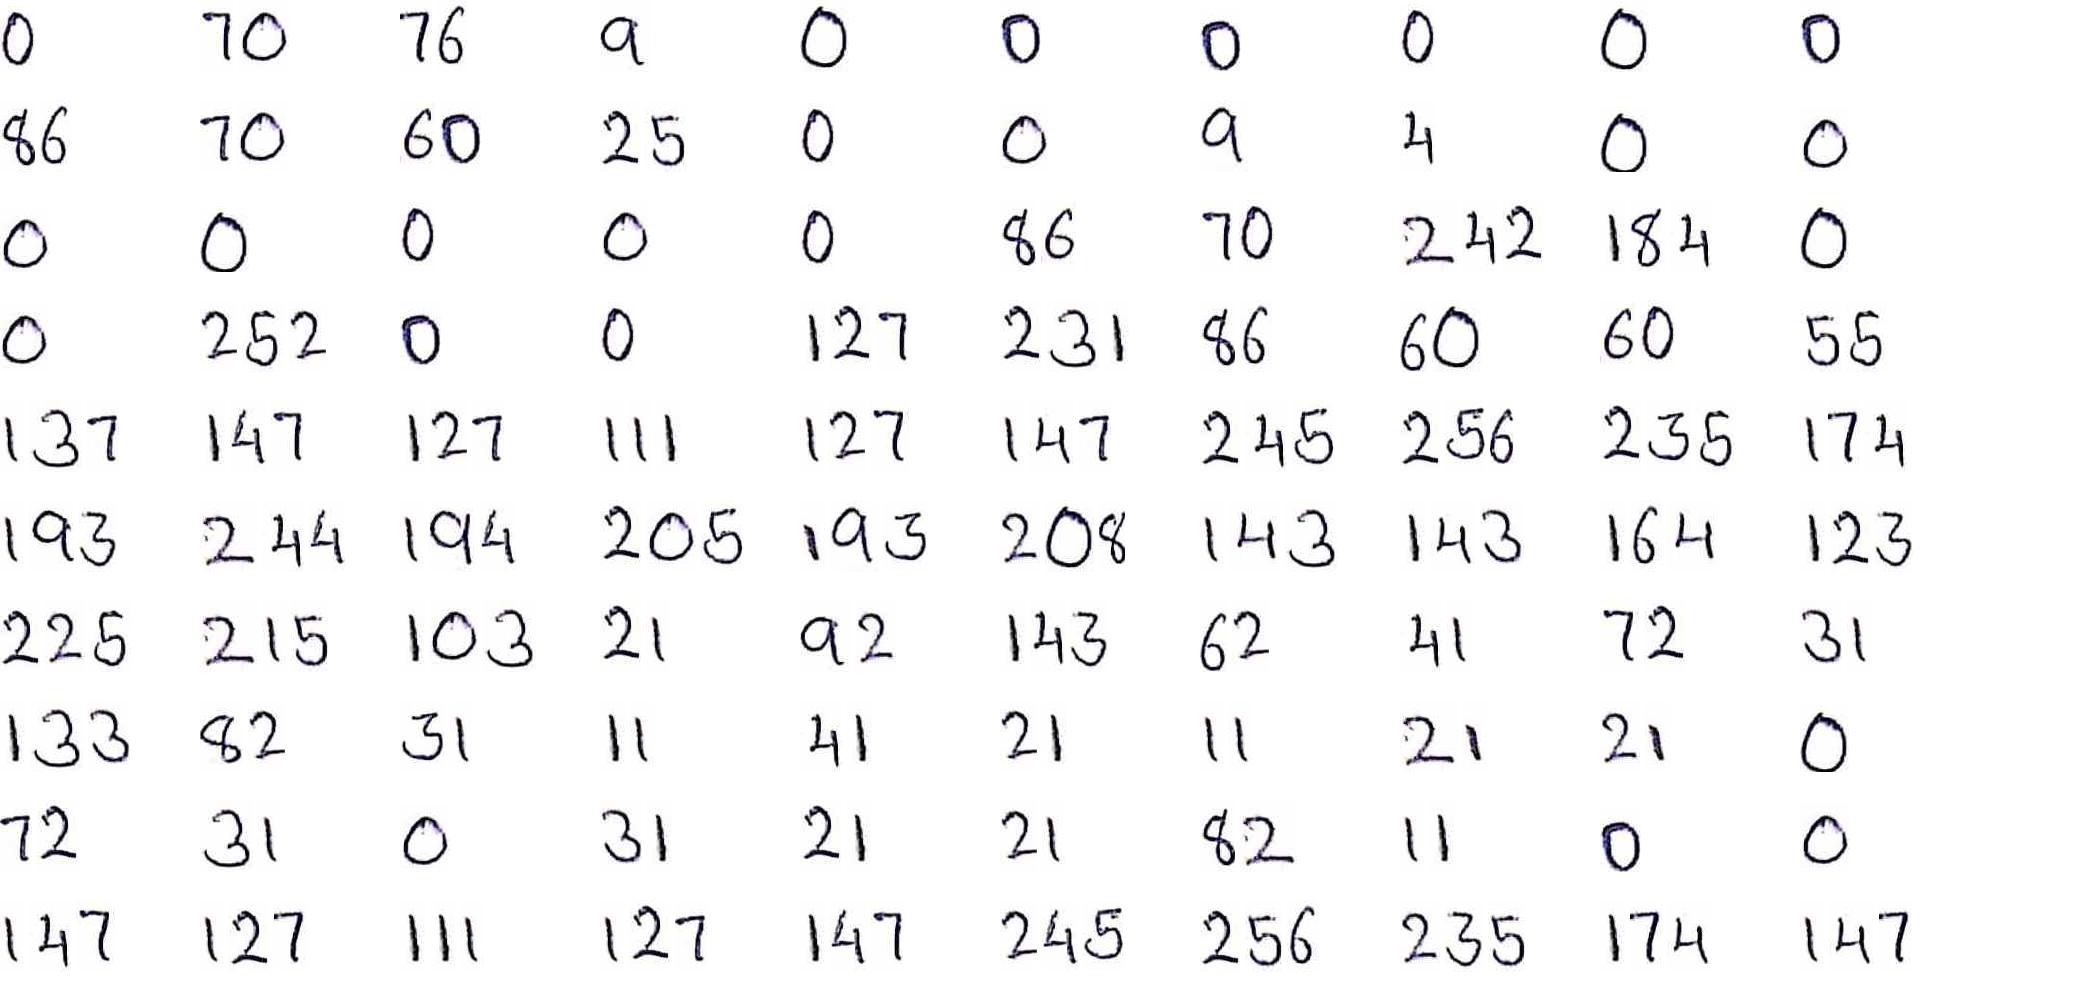 0 70 76 9 0 0 0 0 0 0
86 70 60 25 0 0 9 4 0 0
0 0 0 0 0 86 70 242 184 0
0 252 0 0 127 231 86 60 60 55
137 147 127 111 127 147 245 256 235 174
193 244 194 205 193 208 143 143 164 123
225 215 103 21 92 143 62 41 72 31
133 82 31 11 41 21 11 21 21 0
72 31 0 31 21 21 82 11 0 0
147 127 111 127 147 245 256 235 174 147